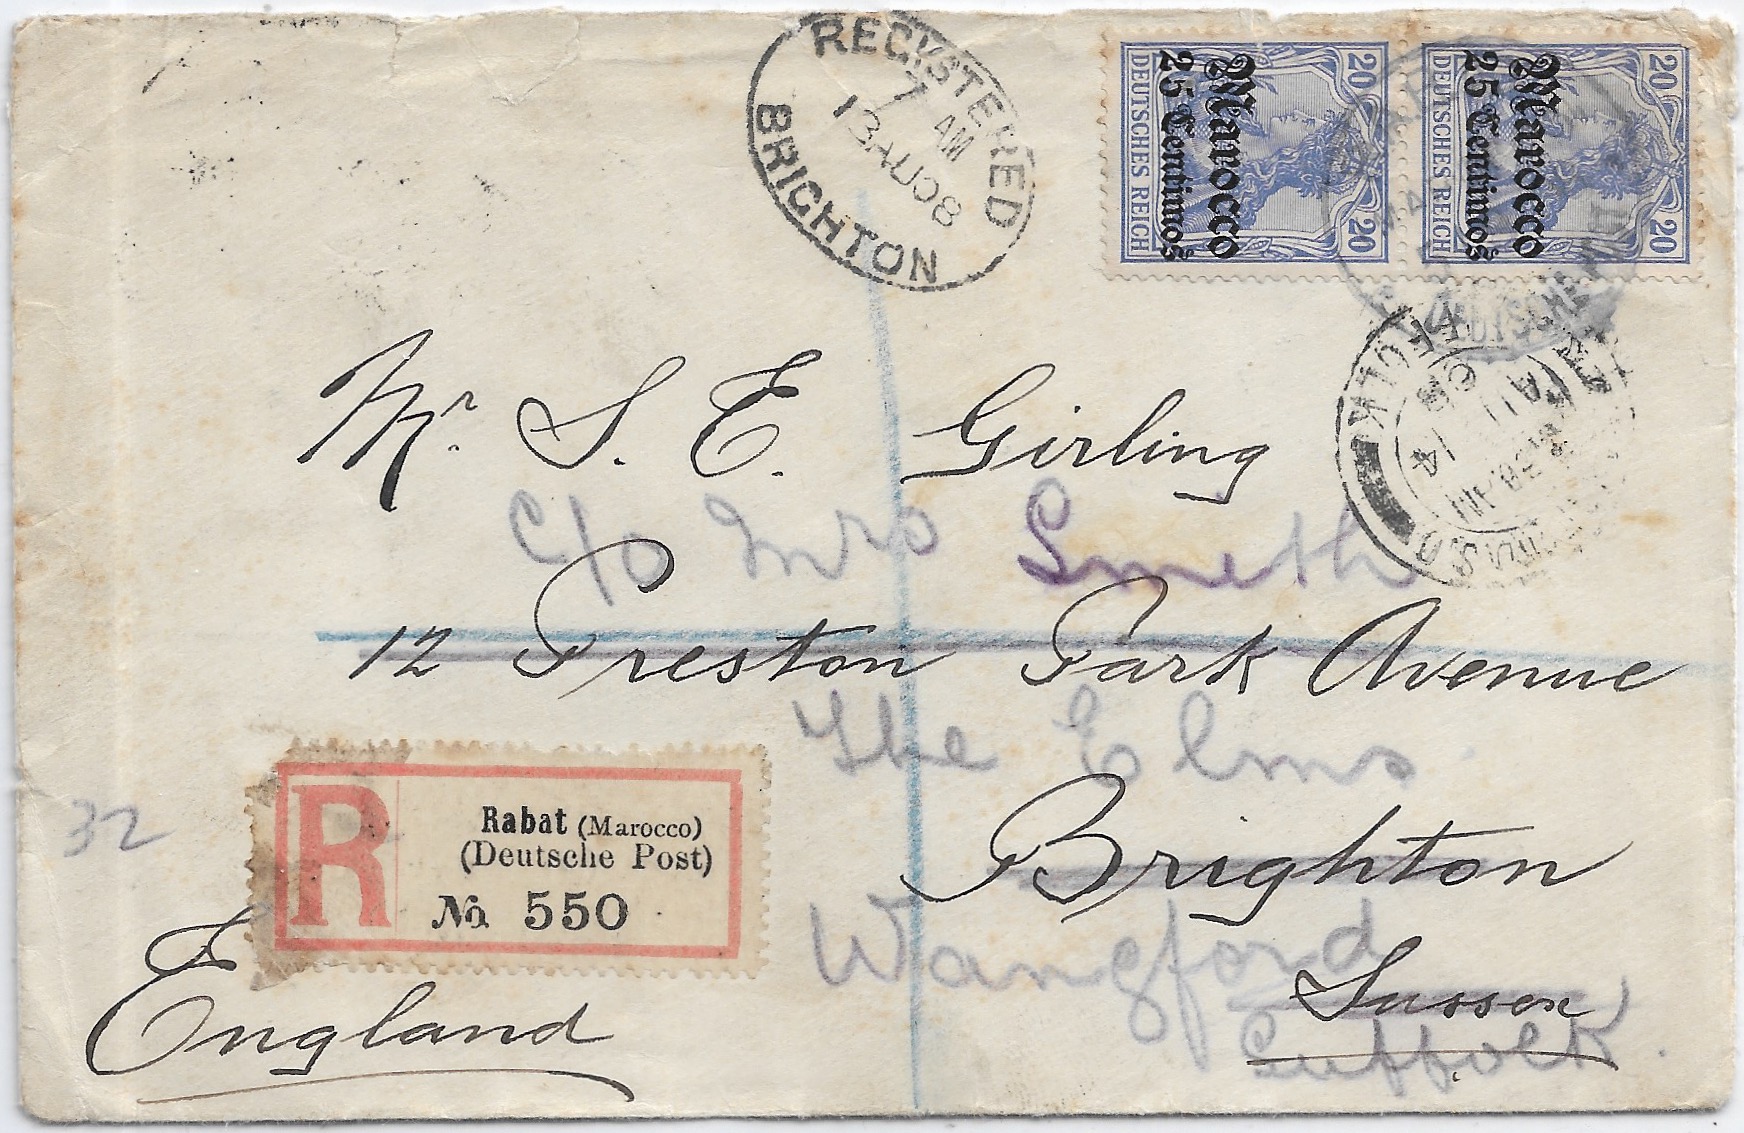 REGISTERED
7 AM
13 AU 08
BRIGHTON
20 20
DEUTSCHES REICH
Marocco
25 Centimos
20 20
DEUTSCHES REICH
Marocco
25 Centimos
SUFFOLK
AU 14
08
Mr. S. E. Girling
c/o Mrs Smeth
12 Preston Park Avenue
The Elms
Brighton
Wangford
Sussex
Suffolk.
32
R
Rabat (Marocco)
(Deutsche Post)
No. 550
England